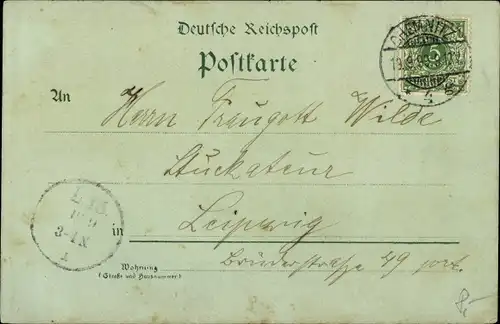 Deutsche Reichspost
Postkarte
CHEMNITZ
5
An Herrn Traugott Wilde
Stuckateur
in Leipzig
Wohnung
(Straße und Hausnummer)
Brüderstraße 29 part.